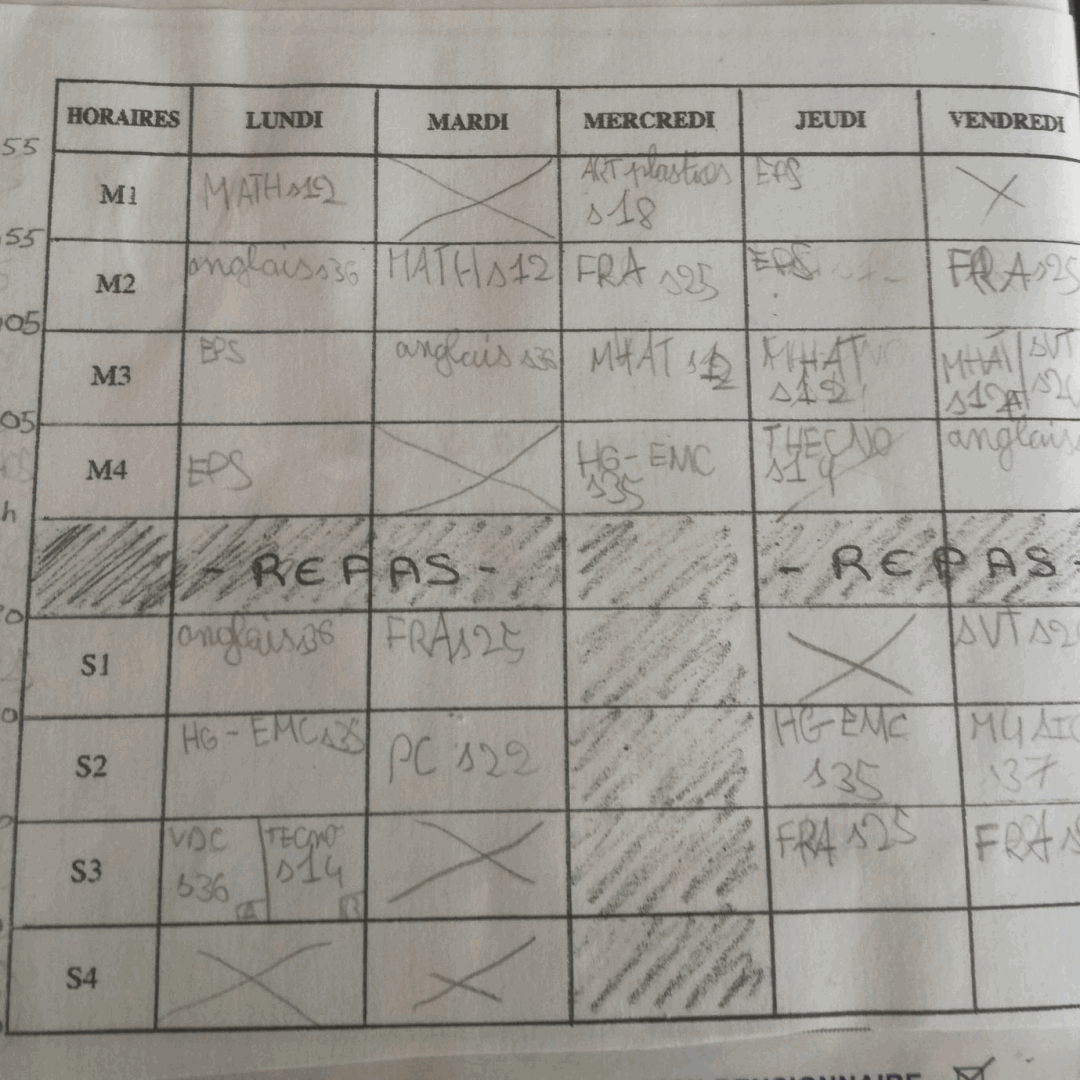 HORAIRES LUNDI MARDI MERCREDI JEUDI VENDREDI
55
M1 MATH s12 ART plastics s18 EPS
55
M2 anglais s36 MATH s12 FRA s25 EPS FRA s25
05
M3 EPS anglais s36 MHAT s12 MHAT s12 MHAT s12 A SVT
05
M4 EPS HG-EMC s35 THECNO s14 anglais
h
- REPAS - - REPAS -
S1 anglais s36 FRA s25 SVT
S2 HG-EMC s35 PC s22 HG-EMC s35 MUSIC s37
S3 VDC s36 A TECNO s14 B FRA s25 FRA
S4